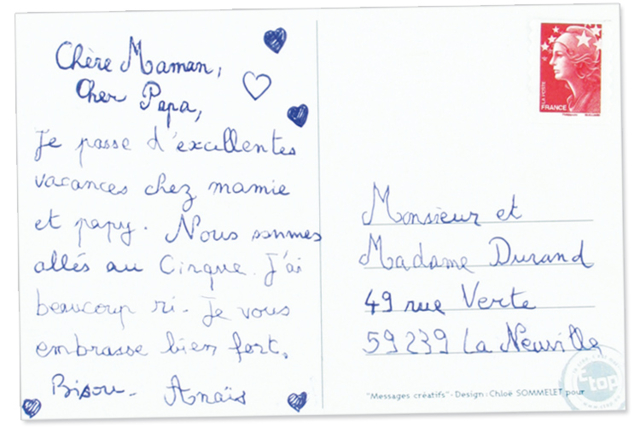 Chère Maman,
Cher Papa,
Je passe d'excellentes
vacances chez mamie
et papy. Nous sommes
allés au Cirque. J'ai
beaucoup ri. Je vous
embrasse bien fort.
Bisou. Anaïs
FRANCE
LA POSTE
Monsieur et
Madame Durand
49 rue Verte
59239 La Neuville
"Messages créatifs" - Design : Chloé SOMMELET pour
top